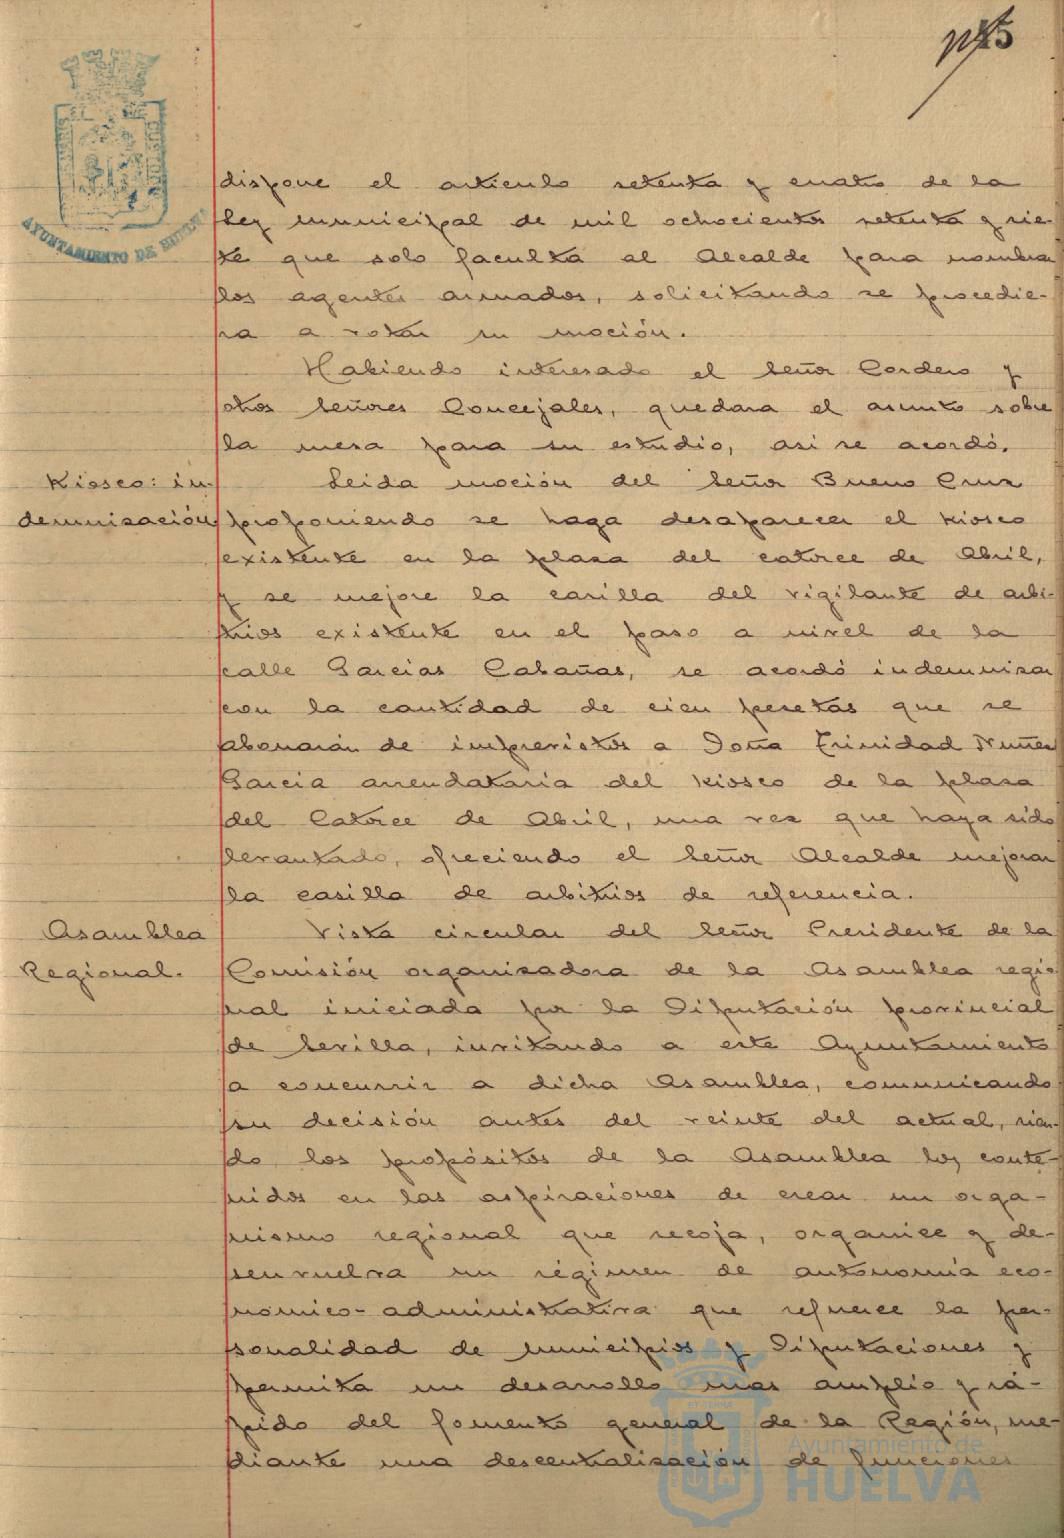 AYUNTAMIENTO DE HUELVA
dispone el artículo setenta y cuatro de la
Ley municipal de mil ochocientos setenta y sie-
te que solo faculta al Alcalde para nombrar
los agentes armados, solicitando se procedie-
ra a votar su moción.
Habiendo interesado el Señor Cordero y
otros Señores Concejales, quedara el asunto sobre
la mesa para su estudio, asi se acordó.
Kiosco: in-
demnización
Leida moción del Señor Bueno Cruz
proponiendo se haga desaparecer el kiosco
existente en la plaza del catorce de Abril,
y se mejore la casilla del vigilante de arbi-
trios existente en el paso a nivel de la
calle Garcias Cabañas, se acordó indemnizar
con la cantidad de cien pesetas que se
abonarán de imprevistos a Doña Trinidad Nuñez
Garcia arrendataria del kiosco de la plaza
del Catorce de Abril, una vez que haya sido
levantado, ofreciendo el Señor Alcalde mejorar
la casilla de arbitrios de referencia.
Asamblea
Regional.
Vista circular del Señor Presidente de la
Comisión organizadora de la Asamblea regio
nal iniciada por la Diputación provincial
de Sevilla, invitando a este Ayuntamiento
a concurrir a dicha Asamblea, comunicando
su decisión antes del veinte del actual, sien-
do los propósitos de la Asamblea los conte-
nidos en las aspiraciones de crear un orga-
nismo regional que recoja, organice y de-
senvuelva un régimen de autonomía eco-
nómico-administrativa que refuerce la per-
sonalidad de municipios y Diputaciones y
permita un desarrollo mas amplio y rá-
pido del fomento general de la Región, me-
diante una descentralización de funciones
Ayuntamiento de
HUELVA